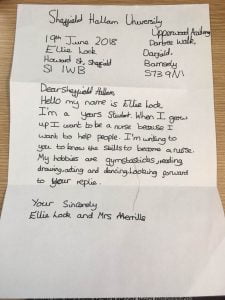 Sheffield Hallam University
Upperwood Academy
19th June 2018
Dartree Walk,
Ellie Lock
Darfield,
Howard St, Sheffield
Barnsley
S1 1WB
S73 9NL
Dear Sheffield Hallam
Hello my name is Ellie Lock.
I'm a year5 Student. When I grow
up I want to be a nurse because I
want to help people. I'm writing to
you to know the skills to become a nurse.
My hobbies are gymbasticks, reading,
drawing, acting and dancing. Looking forward
to your replie.
Your Sincerely
Ellie Lock and Mrs Merrills